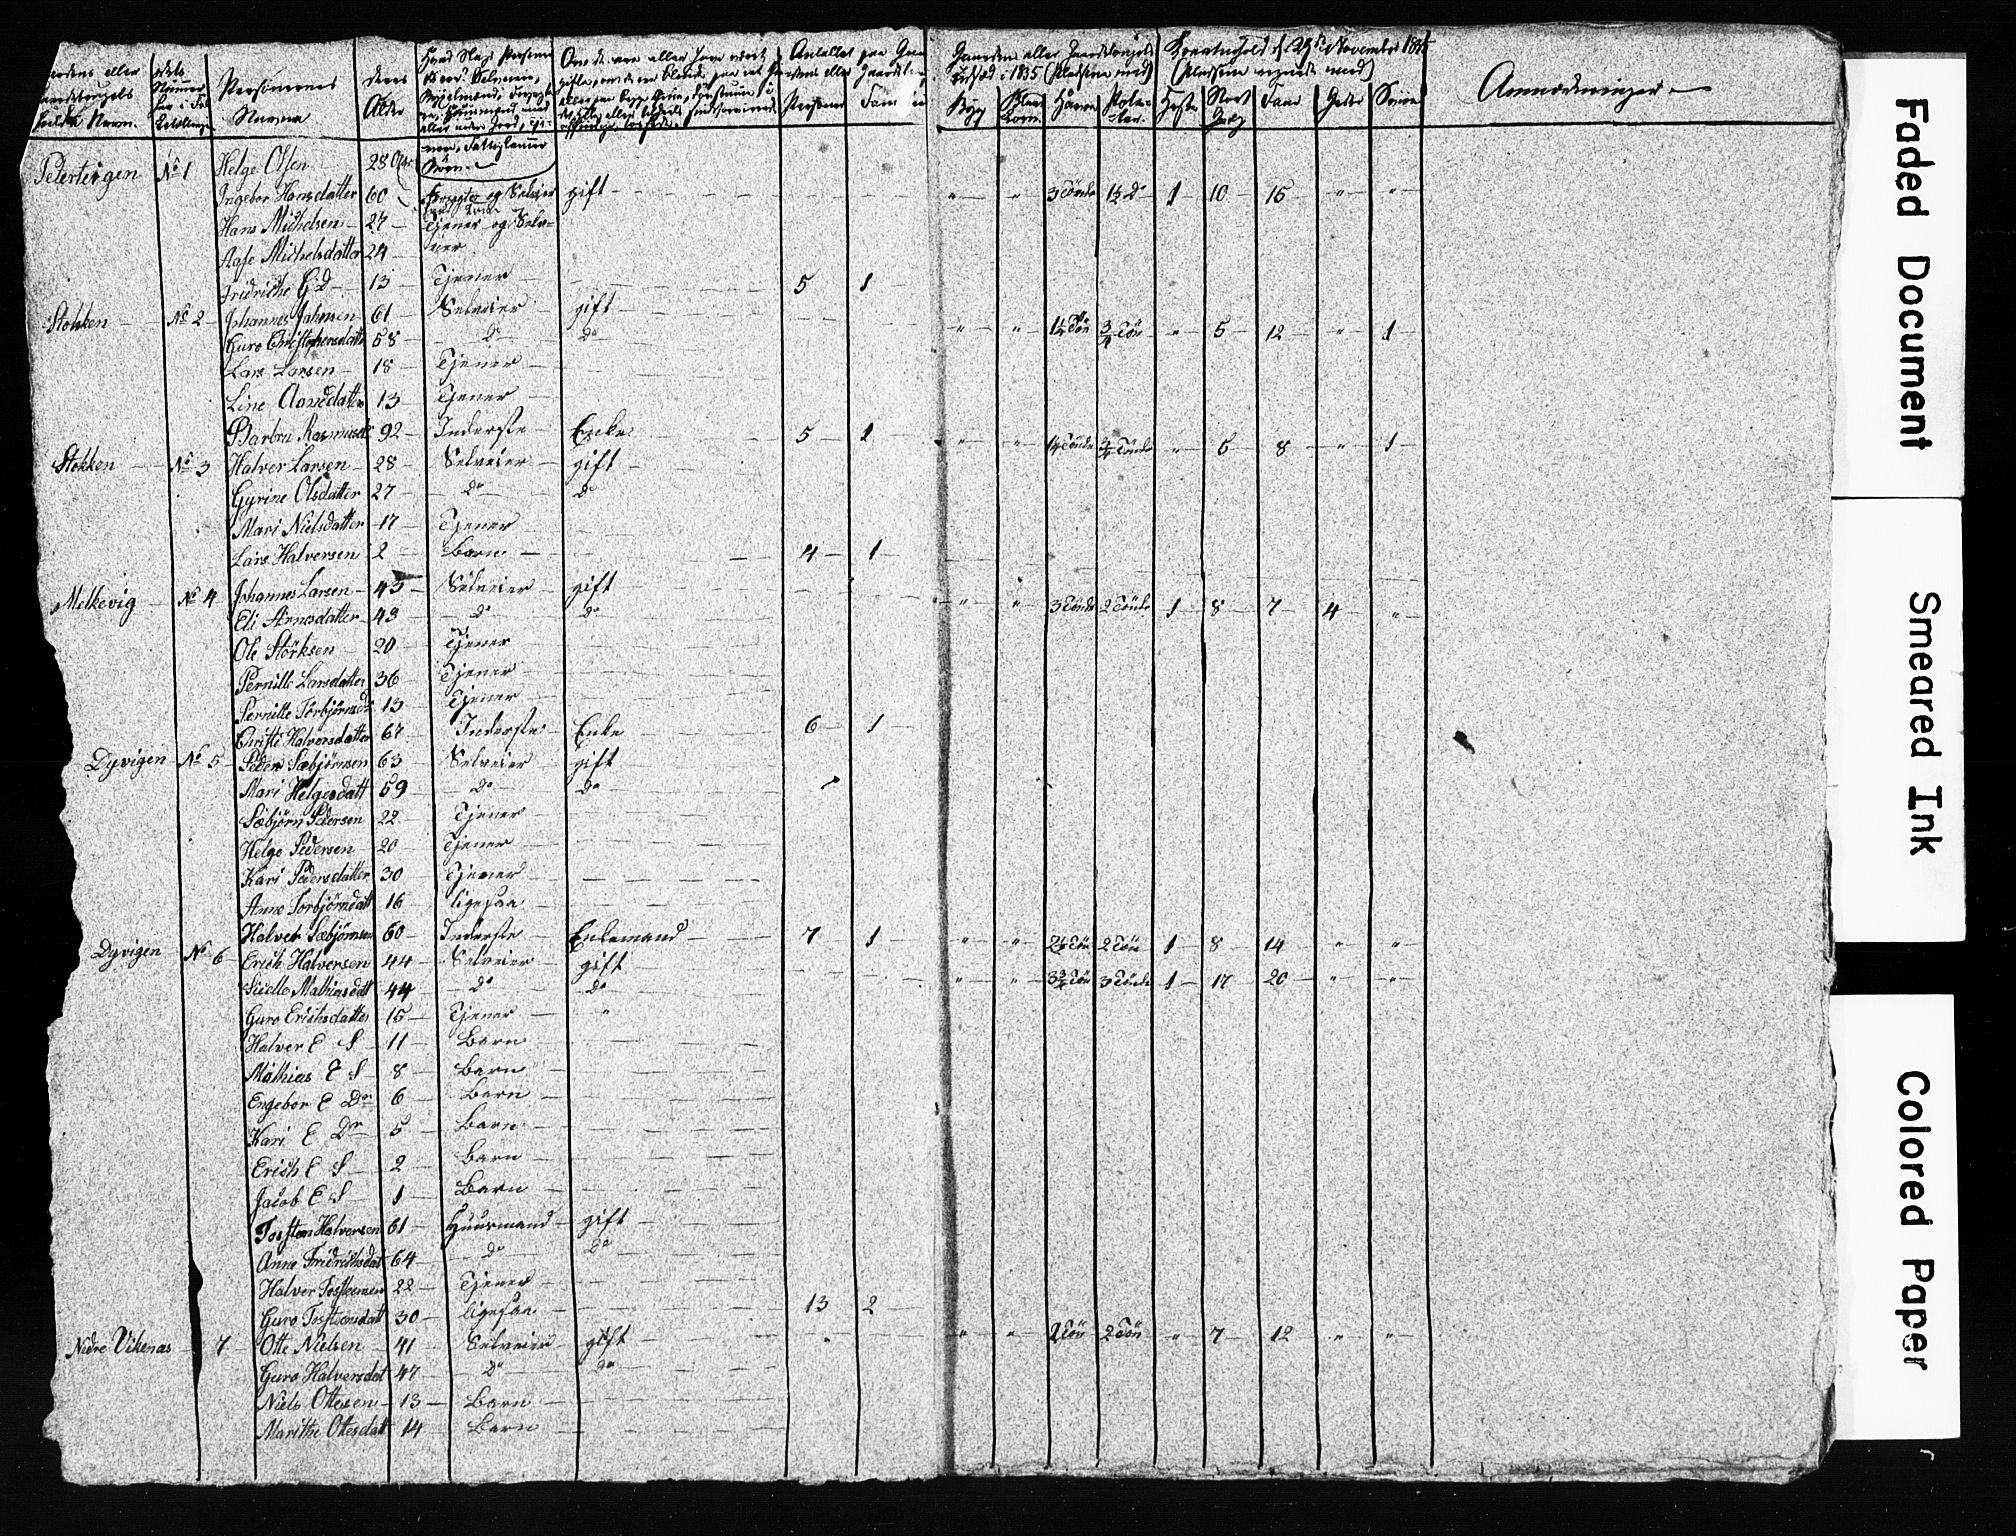 Personernes Navne
deres Alder
Antallet paa
Personer
Fam
Udsæd i 1835 (Pladsene med)
Kreaturhold d. 29de November 1835
Byg
Bland Korn
Havre
Heste
Faar
Geder
Sviin
Anmærkninger
Petersteigen No 1 Helge Olsen 28
Ingebor Hansdatter 60 og Selveier gift " " 3 Tønde 1½ Do 1 10 16 " "
Hans Michelsen 27 Tjener og Selv-
Aase Michelsdatter 24 eier
Fridriche G D 13 Tjener 5 1
Stokken No 2 Johannes Johnsen 61 Selveier gift
Guro Christophersdatt 58 Do Do " " 1¼ Tøn ¾ Tøn " 5 12 " 1
Lars Larsen 18 Tjener
Line Aanedatter 13 Tjener
Barbru Rasmusdt 92 Inderste Enke 5 1 " " 1¼ Tønde ¾ Tønde " 6 8 " 1
Stokken No 3 Halver Larsen 28 Selveier gift
Gyrine Olsdatter 27 Do Do
Mari Nielsdatter 17 Tjener
Lars Halversen 2 Barn 4 1
Melkevig No 4 Johannes Larsen 43 Selveier gift
Eli Arnesdatter 43 Do Do " " 3 Tønde 2 Tønde 1 8 7 4 "
Ole Störksen 20 Tjener
Pernille Larsdatter 36 Tjener
Pernille Torbjørnsd 13 Tjener
Christi Halversdatter 67 Inderste Enke 6 1
Dyvigen No 5 Peder Sæbjørnsen 63 Selveier gift
Mari Helgesdatt 59 Do Do
Sæbjørn Pedersen 22 Tjener
Helge Pedersen 20 Tjener
Kari Pedersdatter 30 Tjener
Anne Torbjørndatt 16 ligesaa
Halver Sæbjørnsen 60 Inderste Enkemand 7 1 " " 2½ Tøn 2 Tøn 1 8 14 " "
Dyvigen No 6 Erich Halversen 44 Selveier gift
Sidelle Mathiasdatt 44 Do Do " " 3¾ Tøn 3 Tønde 1 17 20 " "
Guro Erichsdatter 15 Tjener "
Halver E S 11 Barn
Mathias E S 8 Barn
Engebor E Dr 6 Barn
Kari E Dr 5 Barn
Erich E S 2 Barn
Jacob E S 1 Barn
Tosten Halversen 61 Huusmand gift
Anne Fridrichsdat 64 Do Do
Halver Tosteensen 22 Tjener
Guro Tosteensdatt 30 ligesaa 13 2
Nedre Vikenæs 7 Otte Nielsen 41 Selveier gift " " " 2 Tøn 2 Tøn " 7 12 " "
Guro Halversdat 47 Do Do
Niels Ottesen 13 Barn
Marithe Ottesdatt 14 Barn
Faded Document
Smeared Ink
Colored Paper